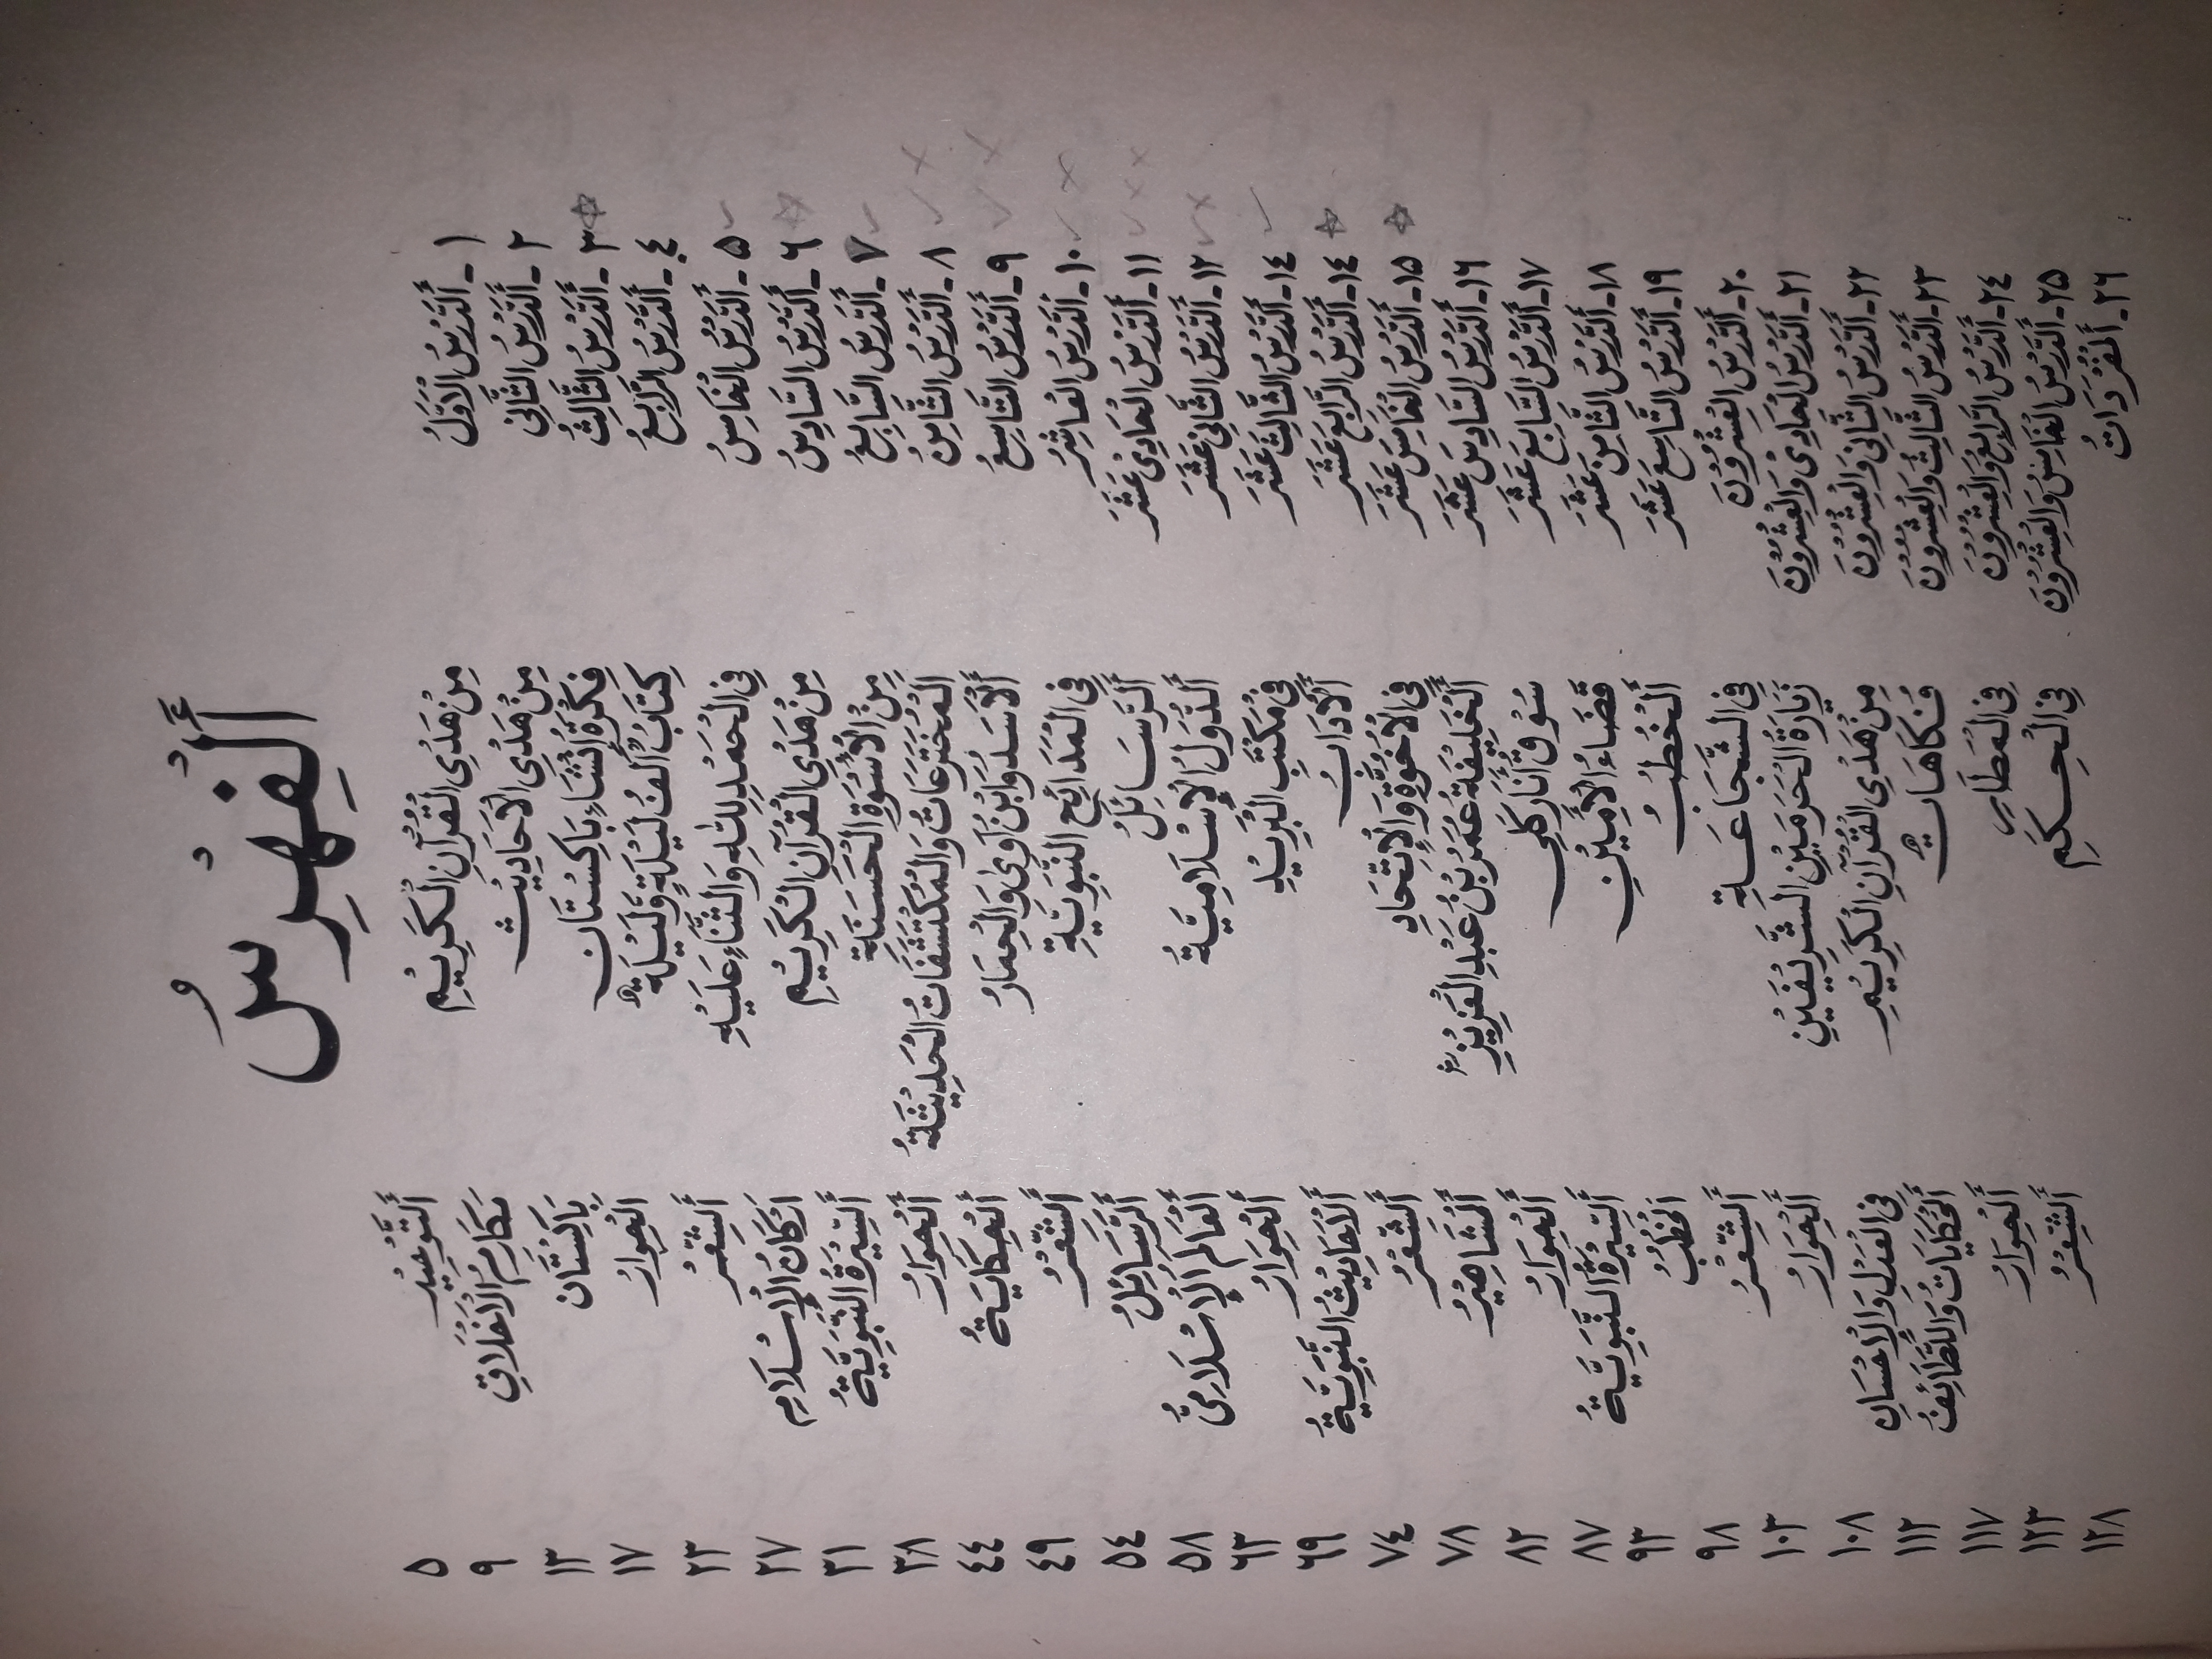 أَلْفِهْرِسُ
١- أَلدَّرْسُ الْأَوَّلُ مِنْ هَدْىِ الْقُرْآنِ الْكَرِيْمِ أَلتَّوْحِيْدُ ٥
٢- أَلدَّرْسُ الثَّانِىْ مِنْ هَدْىِ الْأَحَادِيْثِ مَكَارِمُ الْأَخْلَاقِ ٩
٣- أَلدَّرْسُ الثَّالِثُ فِكْرَةُ إِنْشَاءِ بَاكِسْتَان بَاكِسْتَان ١٣
٤- أَلدَّرْسُ الرَّابِعُ كِتَابُ أَلْفُ لَيْلَةٍ وَّلَيْلَةٌ الْحِوَارُ ١٧
٥- أَلدَّرْسُ الْخَامِسُ فِى الْحَمْدِ لِلّٰهِ وَالثَّنَاءِ عَلَيْهِ أَلشِّعْرُ ٢٣
٦- أَلدَّرْسُ السَّادِسُ مِنْ هَدْىِ الْقُرْآنِ الْكَرِيْمِ اَرْكَانُ الْإِسْلَامِ ٢٧
٧- أَلدَّرْسُ السَّابِعُ مِنَ الْأُسْوَةِ الْحَسَنَةِ أَلسِّيْرَةُ النَّبَوِيَّةُ ٣١
٨- أَلدَّرْسُ الثَّامِنُ أَلْمُخْتَرَعَاتُ وَالْمُكْتَشَفَاتُ الْحَدِيْثَةُ أَلْحِوَارُ ٣٨
٩- أَلدَّرْسُ التَّاسِعُ أَلْأَسَدُ وَابْنُ آوٰى وَالْحِمَارُ أَلْحِكَايَةُ ٤٤
١٠- أَلدَّرْسُ الْعَاشِرُ فِى الْمَدَائِحِ النَّبَوِيَّةِ أَلشِّعْرُ ٤٩
١١- أَلدَّرْسُ الْحَادِىْ عَشَرَ أَلرَّسَائِلُ أَلرَّسَائِلُ ٥٤
١٢- أَلدَّرْسُ الثَّانِىْ عَشَرَ أَلدُّوَلُ الْإِسْلَامِيَّةُ أَلْعَالَمُ الْإِسْلَامِىُّ ٥٨
١٤- أَلدَّرْسُ الثَّالِثَ عَشَرَ فِىْ مَكْتَبِ الْبَرِيْدِ أَلْحِوَارُ ٦٣
١٤- أَلدَّرْسُ الرَّابِعَ عَشَرَ أَلْآدَابُ أَلْأَحَادِيْثُ النَّبَوِيَّةُ ٦٩
١٥- أَلدَّرْسُ الْخَامِسَ عَشَرَ فِى الْأُخُوَّةِ وَالْإِتِّحَادِ أَلشِّعْرُ ٧٤
١٦- أَلدَّرْسُ السَّادِسَ عَشَرَ أَلْخَلِيْفَةُ عُمَرُ بْنُ عَبْدِ الْعَزِيْزِ أَلْمَشَاهِيْرُ ٧٨
١٧- أَلدَّرْسُ السَّابِعَ عَشَرَ سُوْقُ أَنَارْكَلِى أَلْحِوَارُ ٨٢
١٨- أَلدَّرْسُ الثَّامِنَ عَشَرَ قَضَاءُ الْأَمِيْنِ أَلسِّيْرَةُ النَّبَوِيَّةُ ٨٧
١٩- أَلدَّرْسُ التَّاسِعَ عَشَرَ أَلْخُطَبُ الْخُطَبُ ٩٣
٢٠- أَلدَّرْسُ الْعِشْرُوْنَ فِى الشَّجَاعَةِ أَلشِّعْرُ ٩٨
٢١- أَلدَّرْسُ الْحَادِىْ وَالْعِشْرُوْنَ زِيَارَةُ الْحَرَمَيْنِ الشَّرِيْفَيْنِ أَلْحِوَارُ ١٠٣
٢٢- أَلدَّرْسُ الثَّانِىْ وَالْعِشْرُوْنَ مِنْ هَدْىِ الْقُرْآنِ الْكَرِيْمِ فِى الْعَدْلِ وَالْإِحْسَانِ ١٠٨
٢٣- أَلدَّرْسُ الثَّالِثُ وَالْعِشْرُوْنَ فُكَاهَاتٌ أَلْحِكَايَاتُ وَاللَّطَائِفُ ١١٢
٢٤- أَلدَّرْسُ الرَّابِعُ وَالْعِشْرُوْنَ فِى الْمَطَارِ أَلْحِوَارُ ١١٧
٢٥- أَلدَّرْسُ الْخَامِسُ وَالْعِشْرُوْنَ فِى الْحِكَمِ أَلشِّعْرُ ١٢٣
٢٦- أَلْمُفْرَدَاتُ ١٢٨